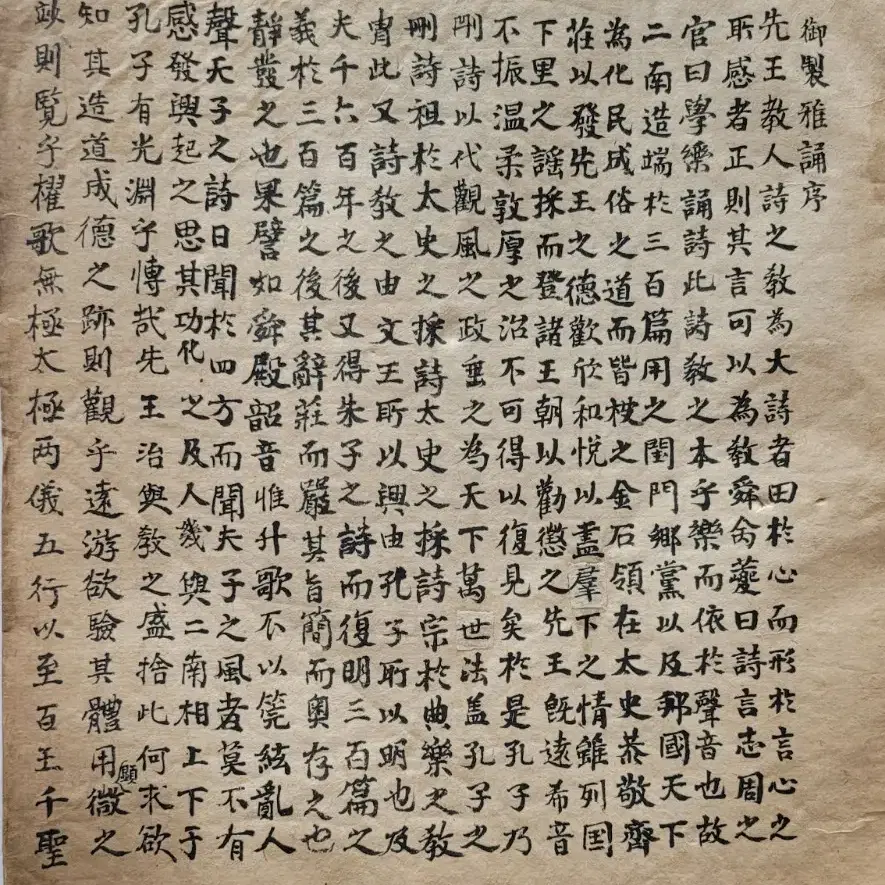 御製雅誦序
先王教人詩之教為大詩者田於心而形於言心之
所感者正則其言可以為教舜命夔曰詩言志周之
官曰學樂誦詩此詩教之本乎樂而依於聲音也故
二南造端於三百篇用之閨門鄉黨以及邦國天下
為化民成俗之道而皆被之金石領在太史恭敬齊
莊以發先王之德歡欣和悅以盡羣下之情雖列国
下里之謠採而登諸王朝以勸懲之先王既遠希音
不振温柔敦厚之治不可得以復見矣於是孔子乃
刪詩以代觀風之政垂之為天下萬世法盖孔子之
刪詩祖於太史之採詩太史之採詩宗於典樂之教
胄此又詩教之由文王所以興由孔子所以明也及
夫千六百年之後又得朱子之詩而復明三百篇之
義於三百篇之後其辭莊而嚴其旨簡而奧存之也
靜發之也果譬如舜殿韶音惟升歌不以筦絃亂人
聲夫子之詩日聞於四方而聞夫子之風者莫不有
感發興起之思其功化之及人幾與二南相上下于
孔子有光淵乎慱哉先王治與教之盛捨此何求欲
知其造道成德之跡則觀乎遠游欲驗其體用顯微之
妙則覽乎櫂歌無極太極两儀五行以至百王千聖